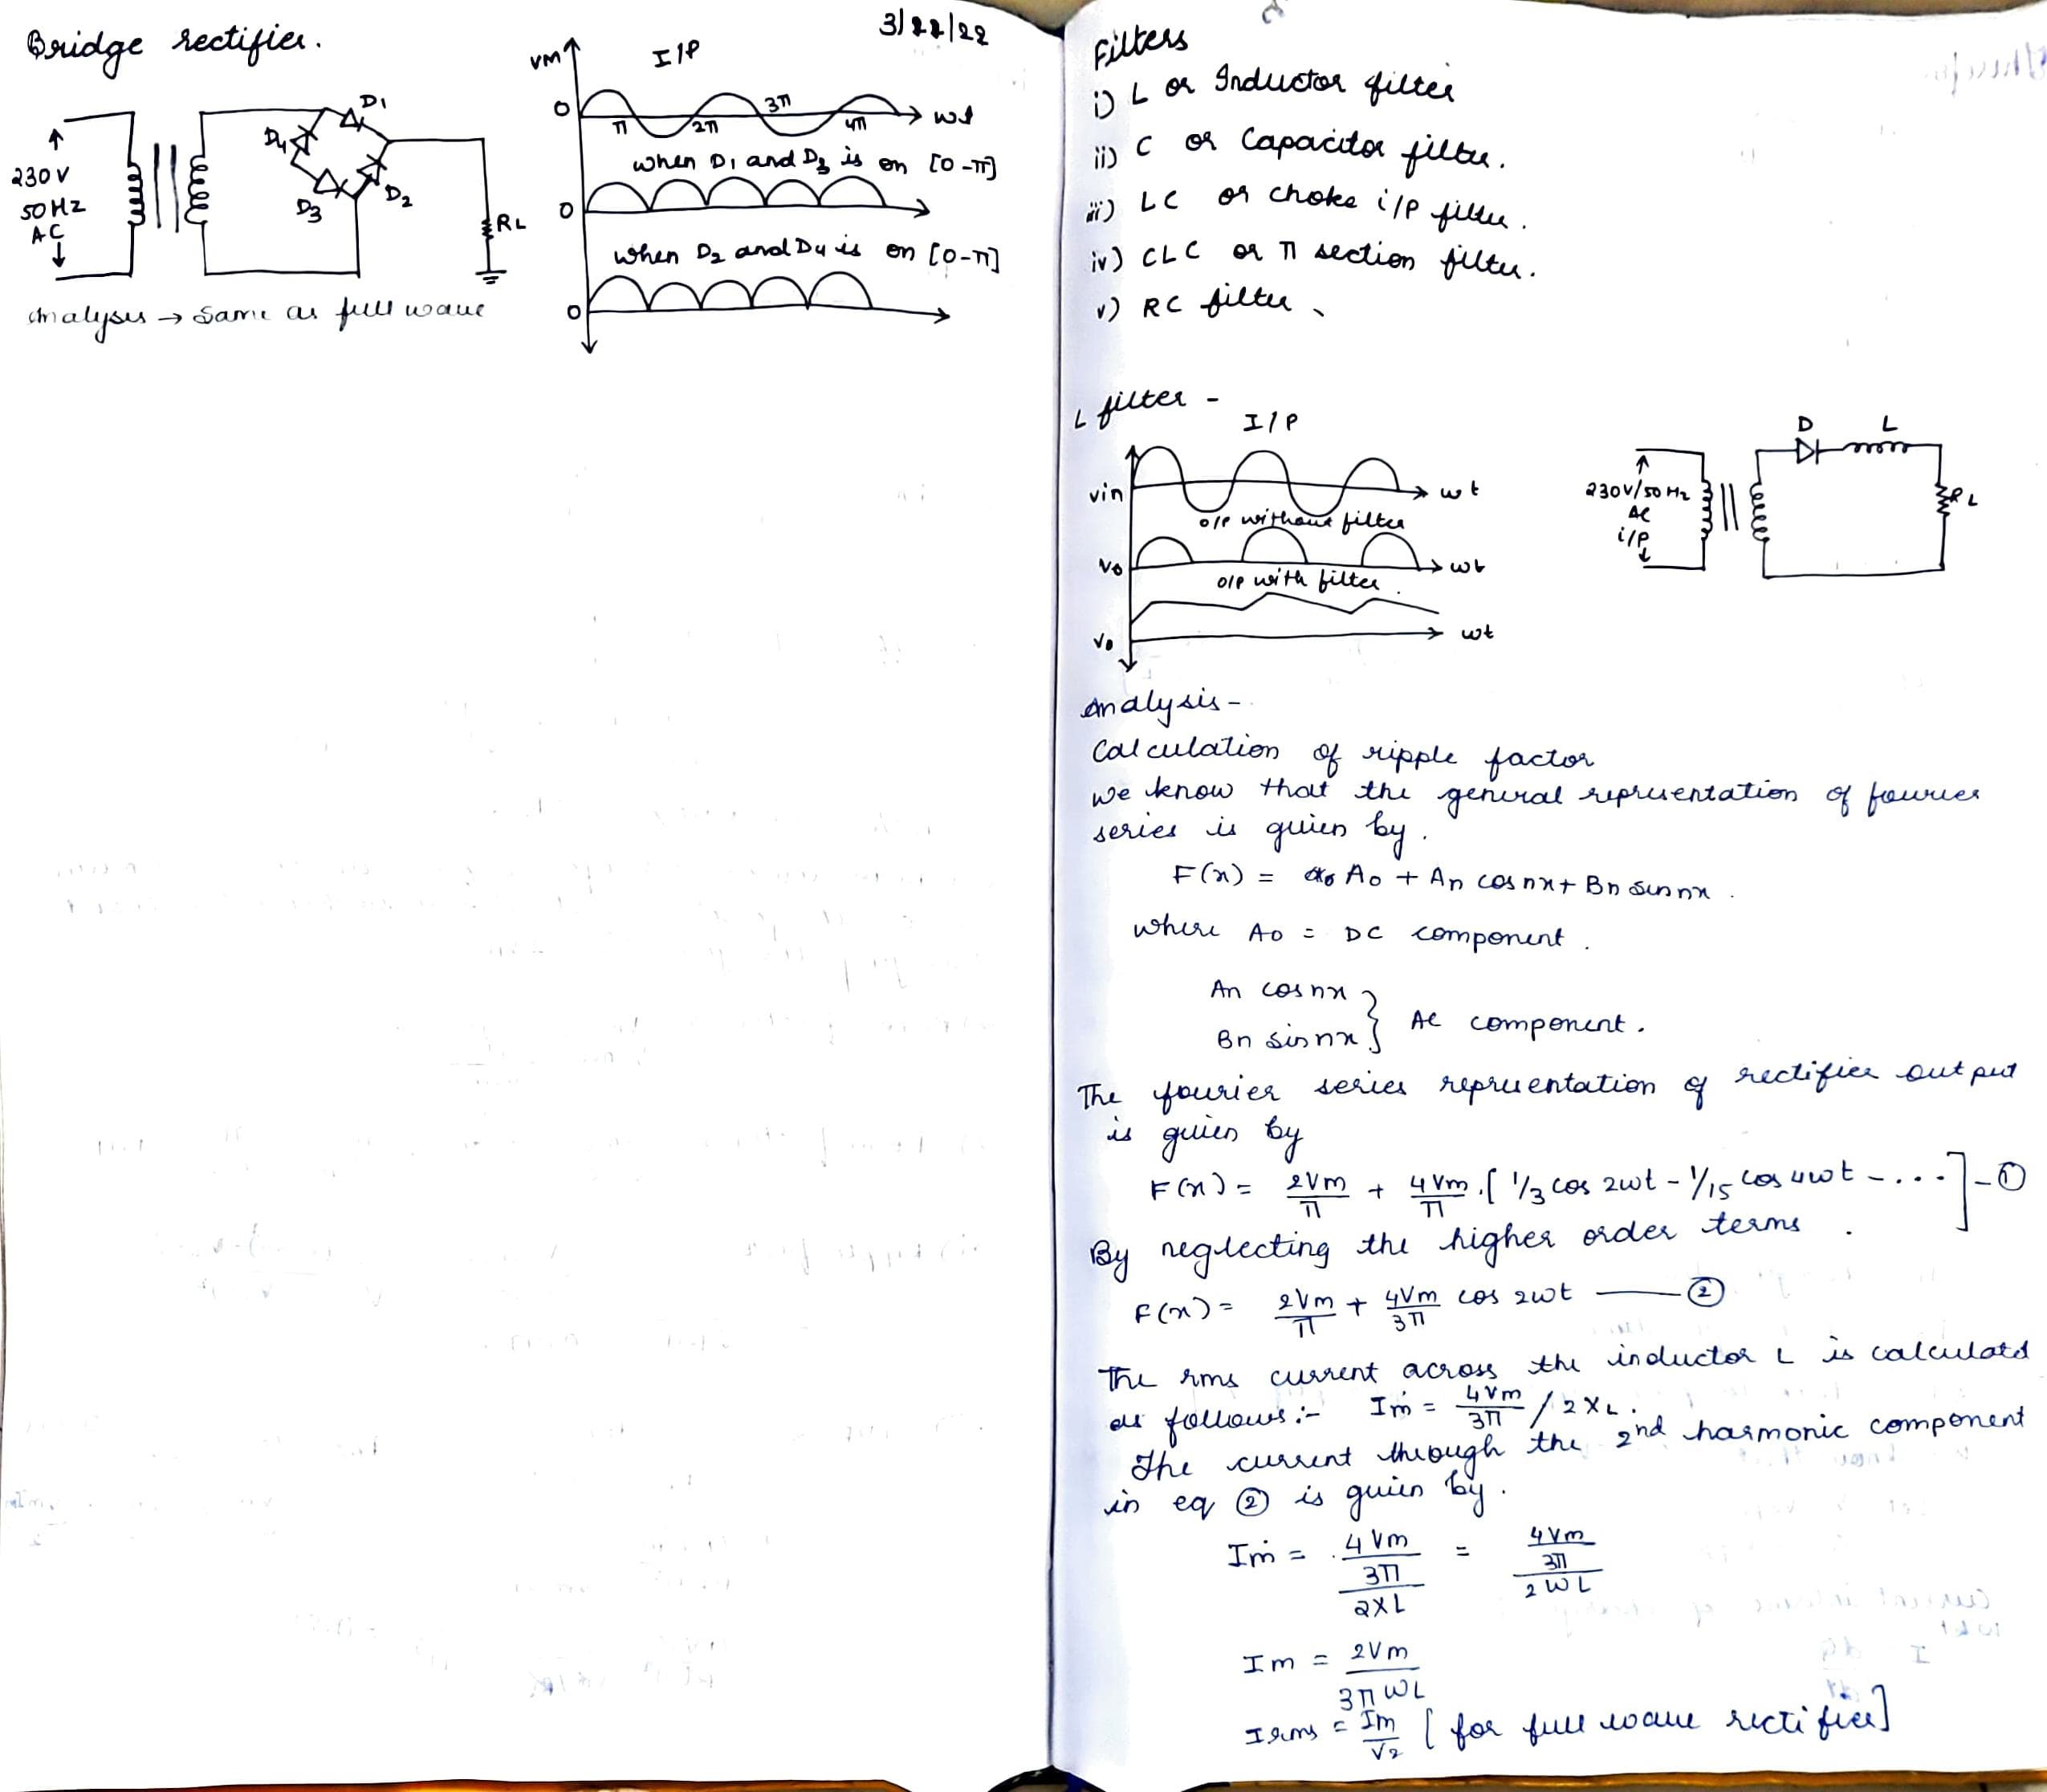 Bridge rectifier.
3/22/22
D1
D4
D3
D2
230 V
50 Hz
AC
RL
Analysis → Same as full wave
Vm
I/P
0
π
2π
3π
4π
wt
when D1 and D3 is on [0-π]
0
when D2 and D4 is on [0-π]
0
Filters
i) L or Inductor filter
ii) C or Capacitor filter.
iii) LC or choke i/p filter.
iv) CLC or π section filter.
v) RC filter
L filter -
I/P
Vin
wt
o/p without filter
Vo
wt
o/p with filter.
Vo
wt
D
L
230V/50 Hz
AC
i/p
RL
Analysis-
Calculation of ripple factor
we know that the general representation of fourier
series is given by.
F(x) = A0 + An cos nx + Bn sin nx.
where A0 = DC component.
An cos nx
Bn sin nx } AC component.
The fourier series representation of rectifier output
is given by
F(x) = 2Vm/π + 4Vm/π [1/3 cos 2wt - 1/15 cos 4wt - ....] - ①
By neglecting the higher order terms.
F(x) = 2Vm/π + 4Vm/3π cos 2wt — ②
The rms current across the inductor L is calculatd
as follows:- Im = 4Vm/3π / 2XL.
The current through the 2nd harmonic component
in eq ② is given by.
Im = 4Vm/3π / 2XL = 4Vm/3π / 2WL
Im = 2Vm / 3πWL
Irms = Im/√2 [for full wave rectifier]